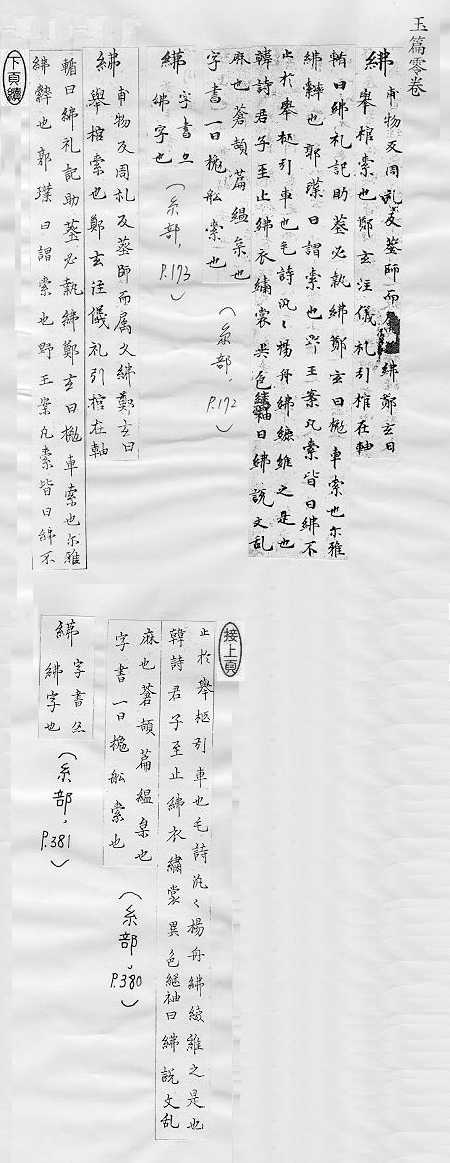 玉篇零卷
紼 甫物反周礼及葬師而紼鄭玄曰
舉棺索也鄭玄注儀礼引棺在軸
輴曰紼礼記助葬必執紼鄭玄曰挽車索也尒雅
紼繂也郭璞曰謂索也野王案凡索皆曰紼不
止於舉柩引車也毛詩汎〻楊舟紼纚維之是也
韓詩君子至止紼衣繡裳異色継袖曰紼說文乱
麻也蒼頡篇緼枲也
字書一曰挽舩索也
（糸部，P.172）
字書亦
紼字也
（糸部，P.173）
紼 甫物反周礼及葬師而属六紼鄭玄曰
舉棺索也鄭玄注儀礼引棺在軸
輴曰紼礼記助葬必執紼鄭玄曰挽車索也尒雅
紼繂也郭璞曰謂索也野王案凡索皆曰紼不
下頁續
接上頁
止於舉柩引車也毛詩汎〻楊舟紼纚維之是也
韓詩君子至止紼衣繡裳異色継袖曰紼說文乱
麻也蒼頡篇緼枲也
字書一曰挽舩索也
（糸部，P.380）
字書亦
紼字也
（糸部，P.381）